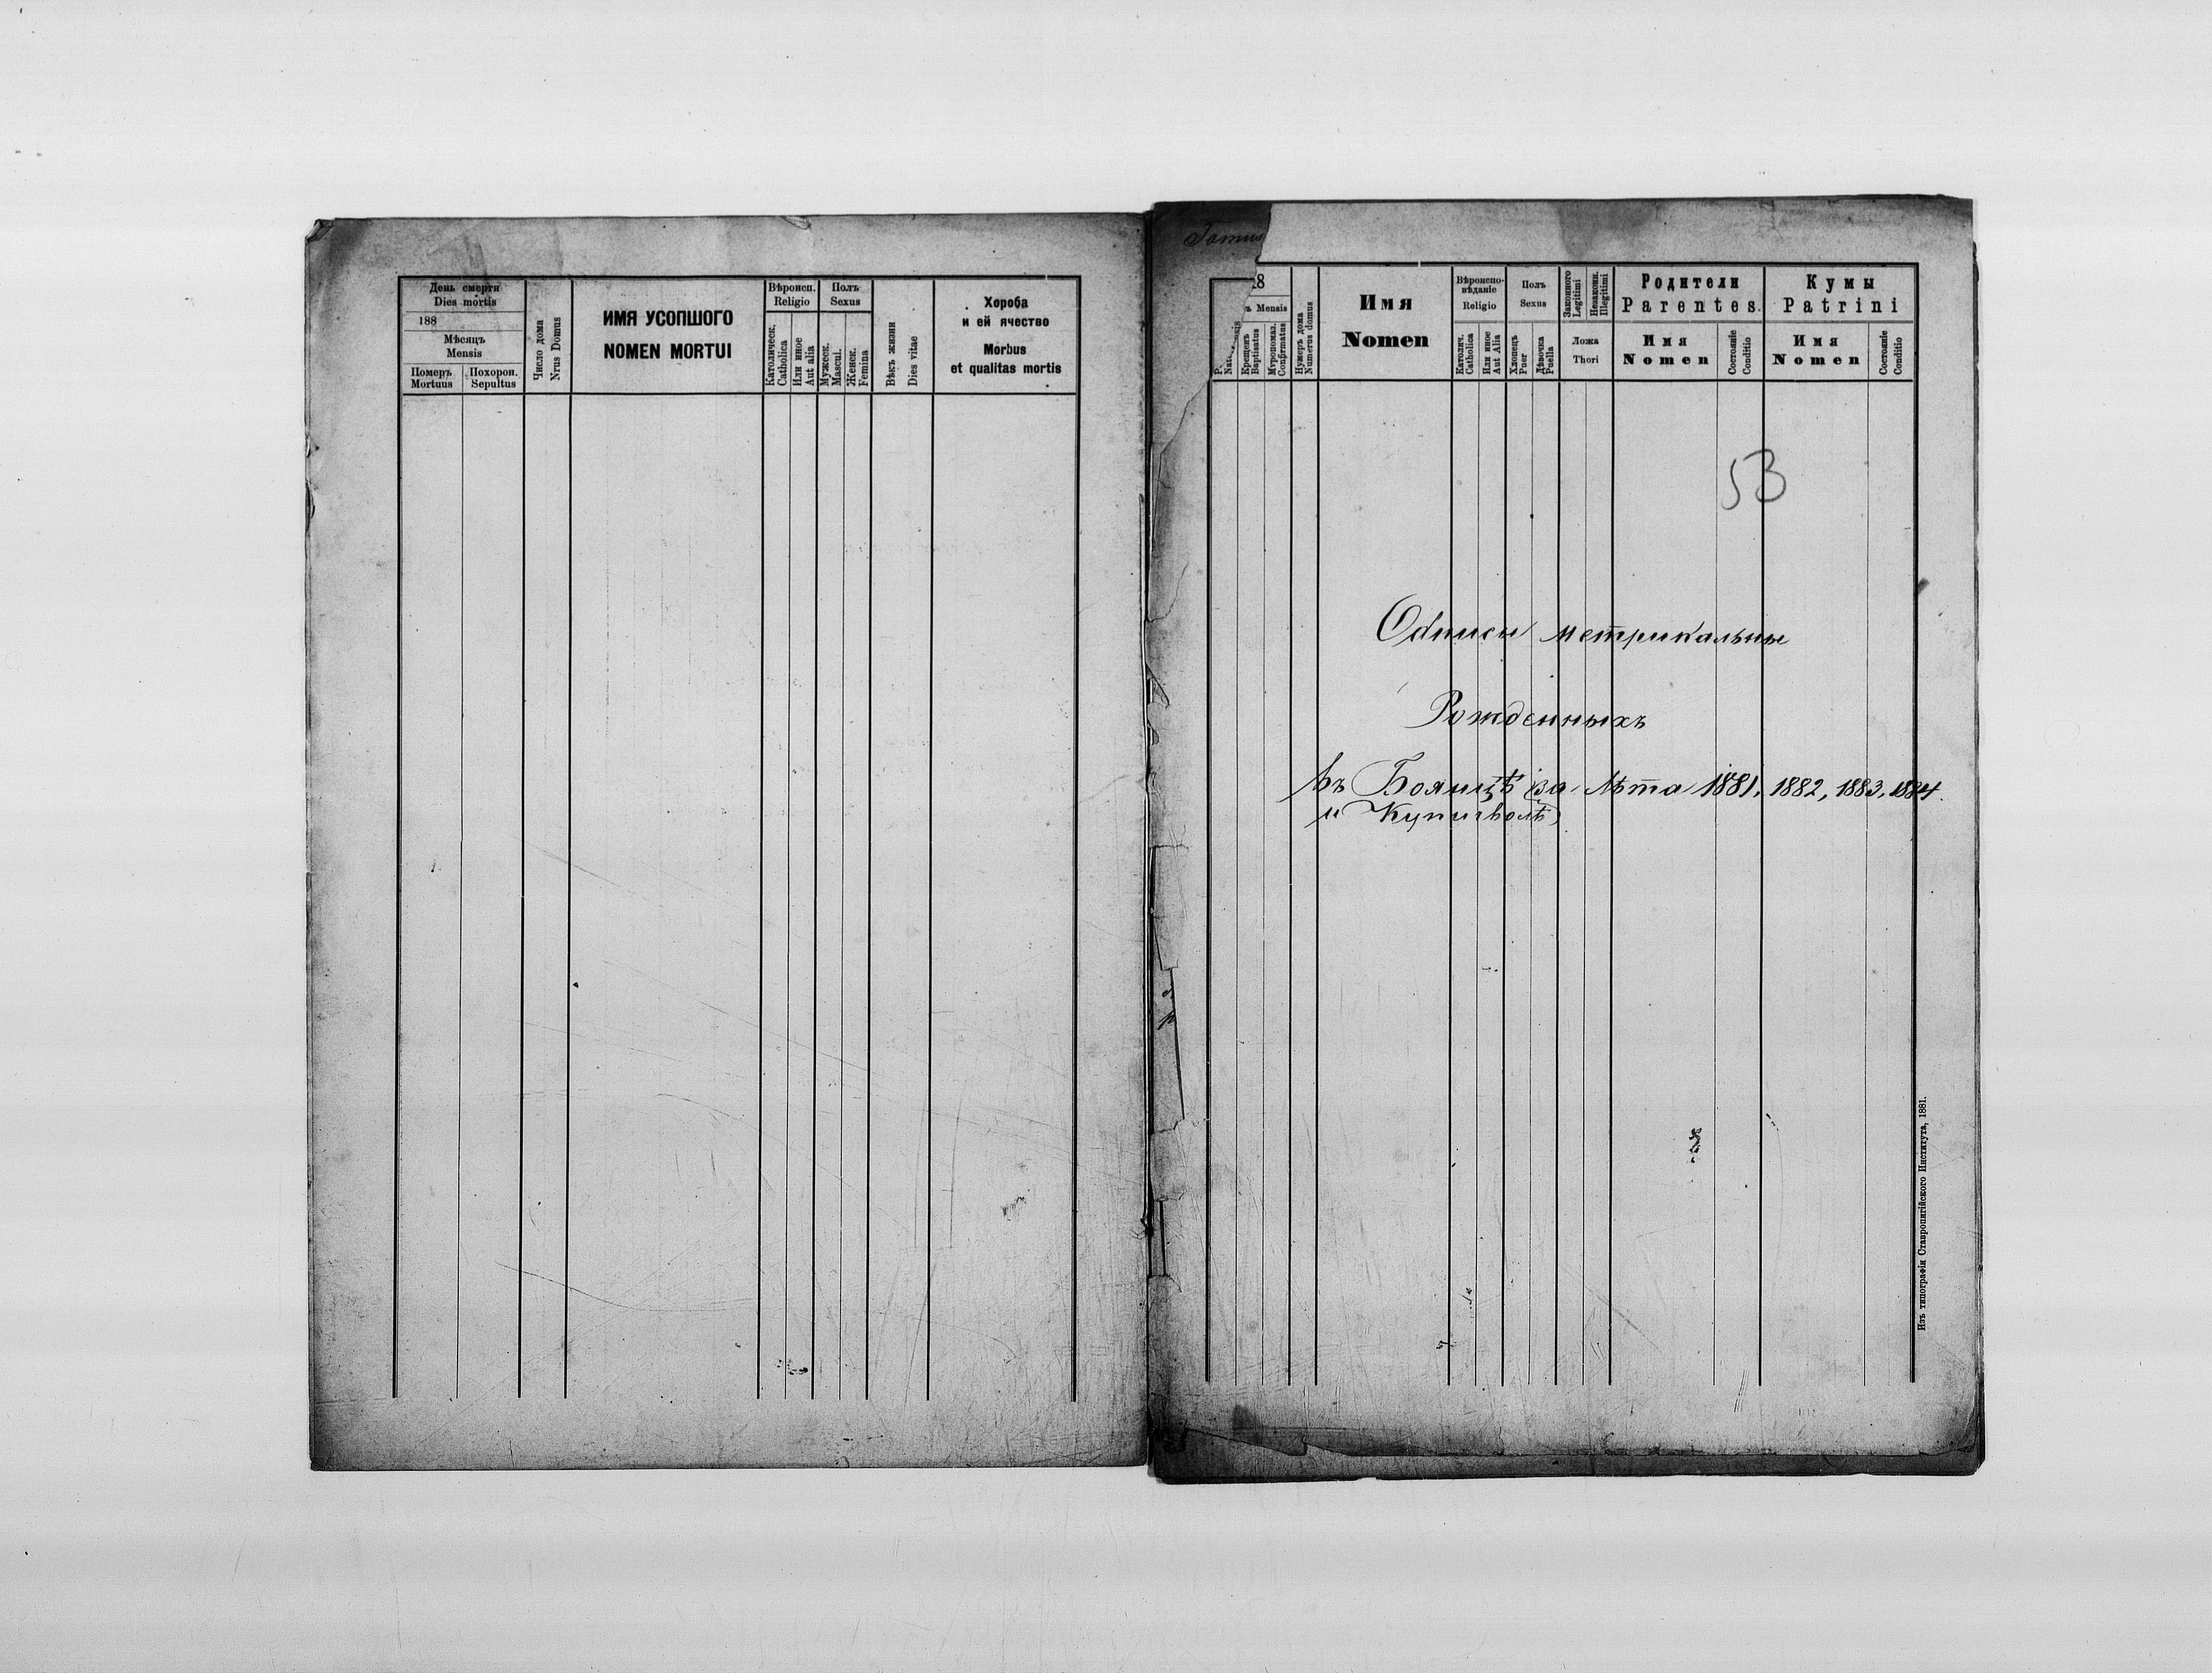 День смерти
Dies mortis
188
Мѣсяцъ
Mensis
Померъ
Mortuus
Похорон.
Sepultus
Число дома
Nrus Domus
ИМЯ УСОПШОГО
NOMEN MORTUI
Вѣроисп.
Religio
Католическ.
Catholica
Или иное
Aut alia
Полъ
Sexus
Мужеск.
Mascul.
Женск.
Femina
Вѣкъ жизни
Dies vitae
Хороба
и ей ячество
Morbus
et qualitas mortis
Tomus
8
Mensis
Крещенъ
Baptisatus
Мѵропомаз.
Confirmatus
Нумеръ дома
Numerus domus
Имя
Nomen
Вѣроиспо-
вѣданіе
Religio
Католич.
Catholica
Или иное
Aut Alia
Полъ
Sexus
Хлопецъ
Puer
Дѣвочка
Puella
Законного
Legitimi
Незаконн.
Illegitimi
Ложа
Thori
Родители
Parentes.
Имя
Nomen
Состояніе
Conditio
Кумы
Patrini
Имя
Nomen
Состояніе
Conditio
53
метрикальны
Рожденныхъ
въ Боянцѣ за лѣта 1881, 1882, 1883, 1884.
и Купичволѣ
Изъ типографіи Ставропигійского Института, 1881.